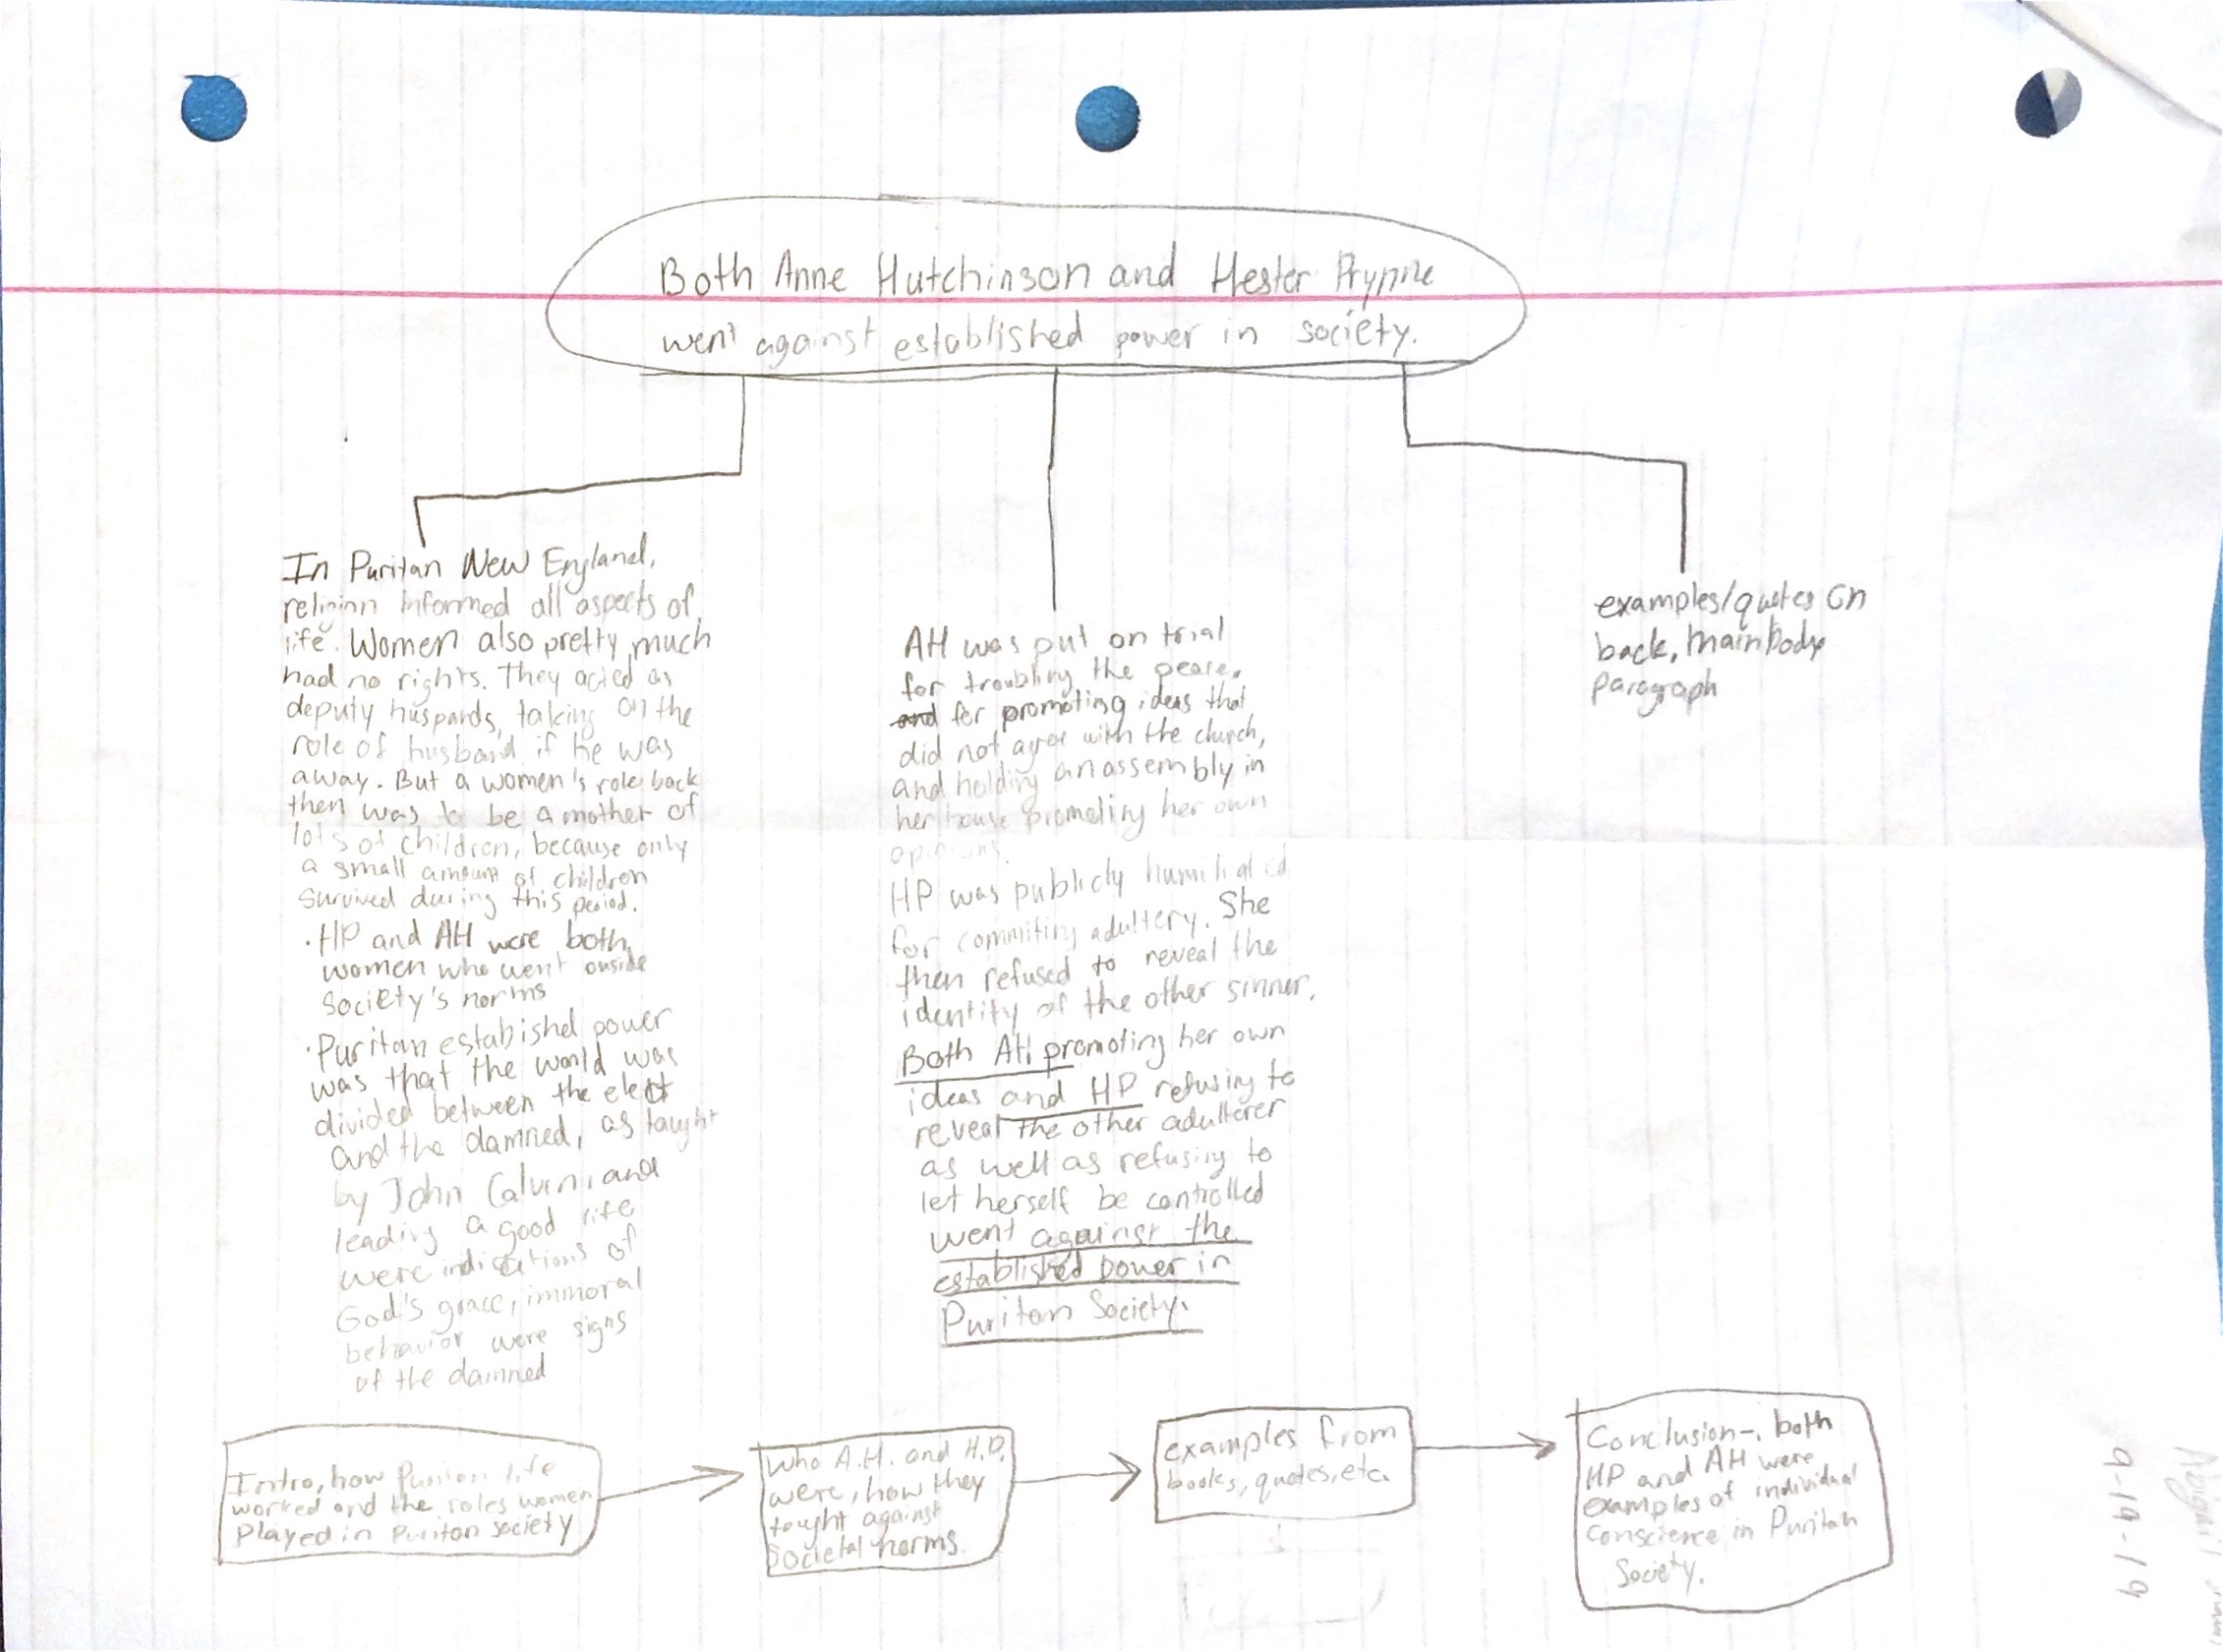 Both Anne Hutchinson and Hester Prynne
went against established power in society.
In Puritan New England,
religion informed all aspects of
life. Women also pretty much
had no rights. They acted as
deputy husbands, taking on the
role of husband if he was
away. But a women's role back
then was to be a mother of
lots of children, because only
a small amount of children
survived during this period.
· HP and AH were both
women who went ouside
society's norms
· Puritan established power
was that the world was
divided between the elect
and the damned, as taught
by John Calvin, and
leading a good life
were indications of
God's grace, immoral
behavior were signs
of the damned
AH was put on trial
for troubling the peace,
and for promoting ideas that
did not agree with the church,
and holding an assembly in
her house promoting her own
opinions.
HP was publicly humiliated
for commiting adultery. She
then refused to reveal the
identity of the other sinner.
Both AH promoting her own
ideas and HP refusing to
reveal the other adulterer
as well as refusing to
let herself be controlled
went against the
established power in
Puritan Society.
examples/quotes on
back, main body
paragraph
Intro, how Puritan life
worked and the roles women
played in Puritan society
Who A.H. and H.P.
were, how they
fought against
societal norms.
examples from
books, quotes, etc.
Conclusion-, both
HP and AH were
examples of individual
conscience in Puritan
Society.
9-19-19